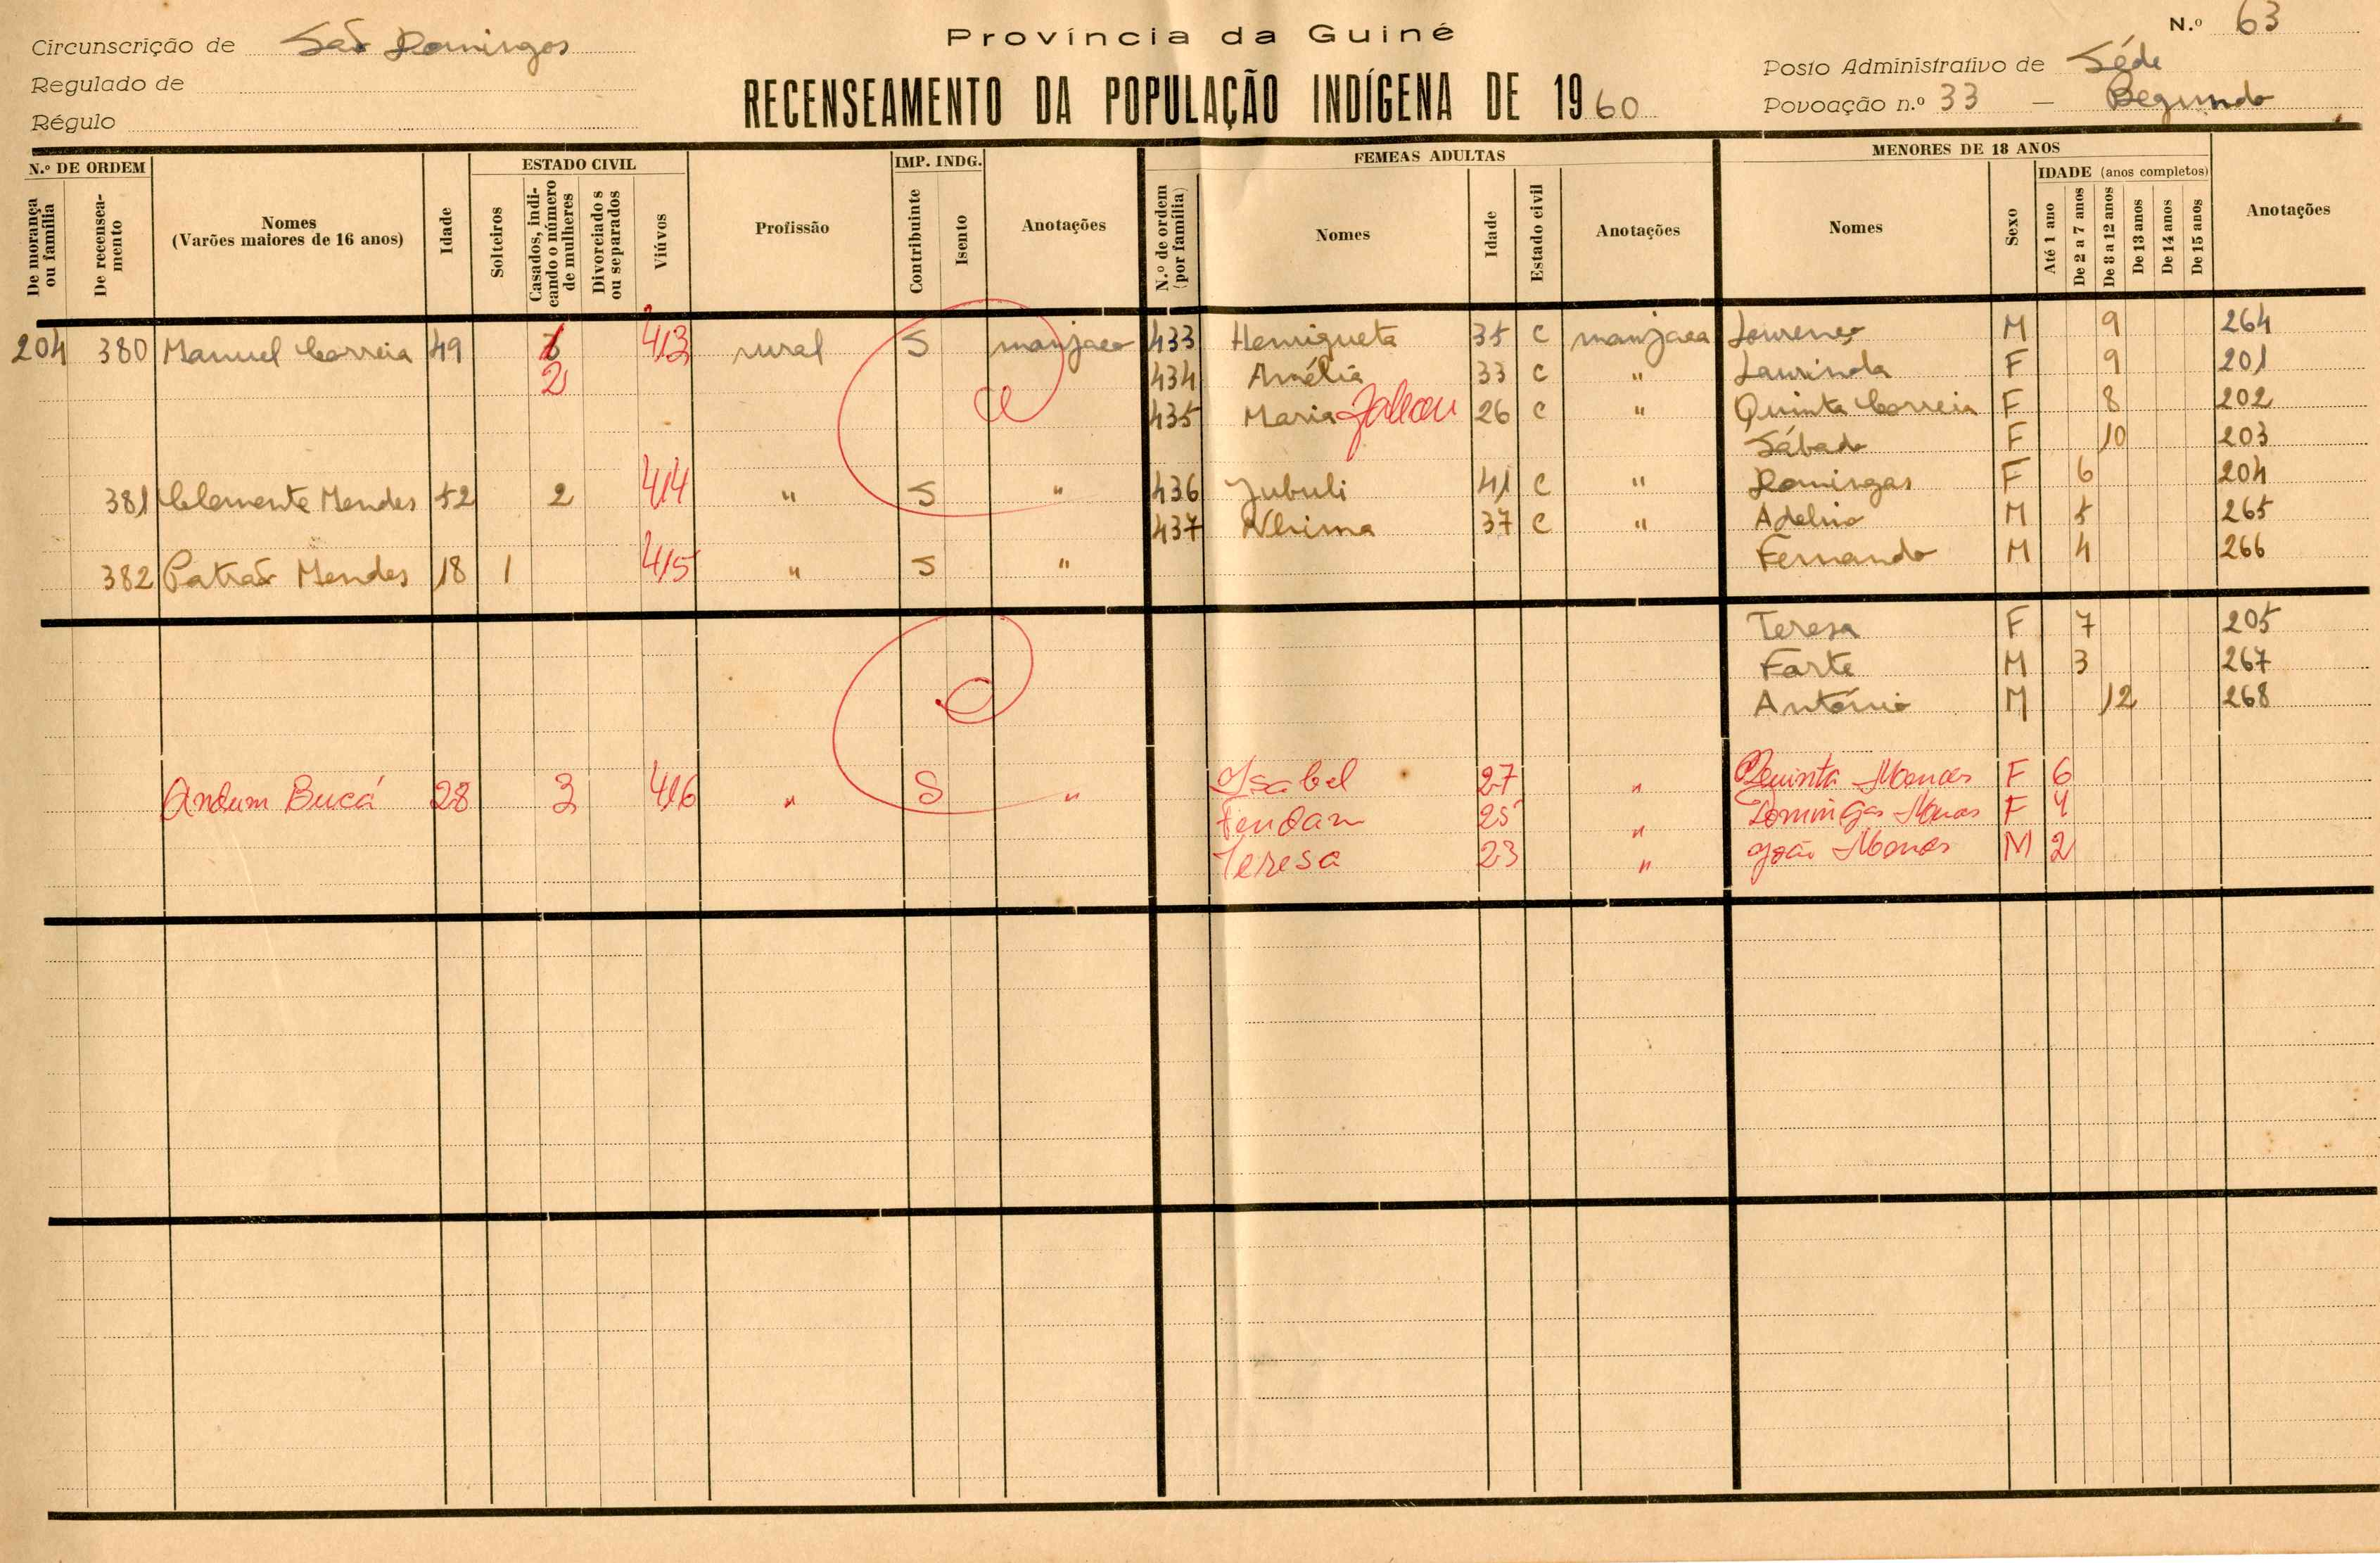 Província da Guiné
N.º 63
Circunscrição de São Domingos
Regulado de
Régulo
RECENSEAMENTO DA POPULAÇÃO INDÍGENA DE 1960
Posto Administrativo de Séde
Povoação n.º 33 — Begunda
N.º DE ORDEM
De morança ou família
De recenseamento
Nomes (Varões maiores de 16 anos)
Idade
ESTADO CIVIL
Solteiros
Casados, indicando o número de mulheres
Divorciados ou separados
Viúvos
Profissão
IMP. INDG.
Contribuinte
Isento
Anotações
FEMEAS ADULTAS
N.º de ordem (por família)
Nomes
Idade
Estado civil
Anotações
MENORES DE 18 ANOS
Nomes
Sexo
IDADE (anos completos)
Até 1 ano
De 2 a 7 anos
De 8 a 12 anos
De 13 anos
De 14 anos
De 15 anos
Anotações
204 380 Manuel Correia 49 3 413 rural S manjaco 433 Henriqueta 35 C manjaca Lourenço M 9 264
2 434 Amélia 33 C " Laurinda F 9 201
435 Maria 26 C " Quinta Correia F 8 202
Sábado F 10 203
381 Clemente Mendes 52 2 414 " S " 436 Jubuli 41 C " Domingas F 6 204
437 Nhima 37 C " Adelino M 5 265
382 Patrão Mendes 18 1 415 " S " Fernando M 4 266
Teresa F 7 205
Farte M 3 267
António M 12 268
Andum Bucá 28 3 416 " S " Isabel 27 " Quinta F 6
Fendam 25 " Domingas F 4
Teresa 23 " João M 2